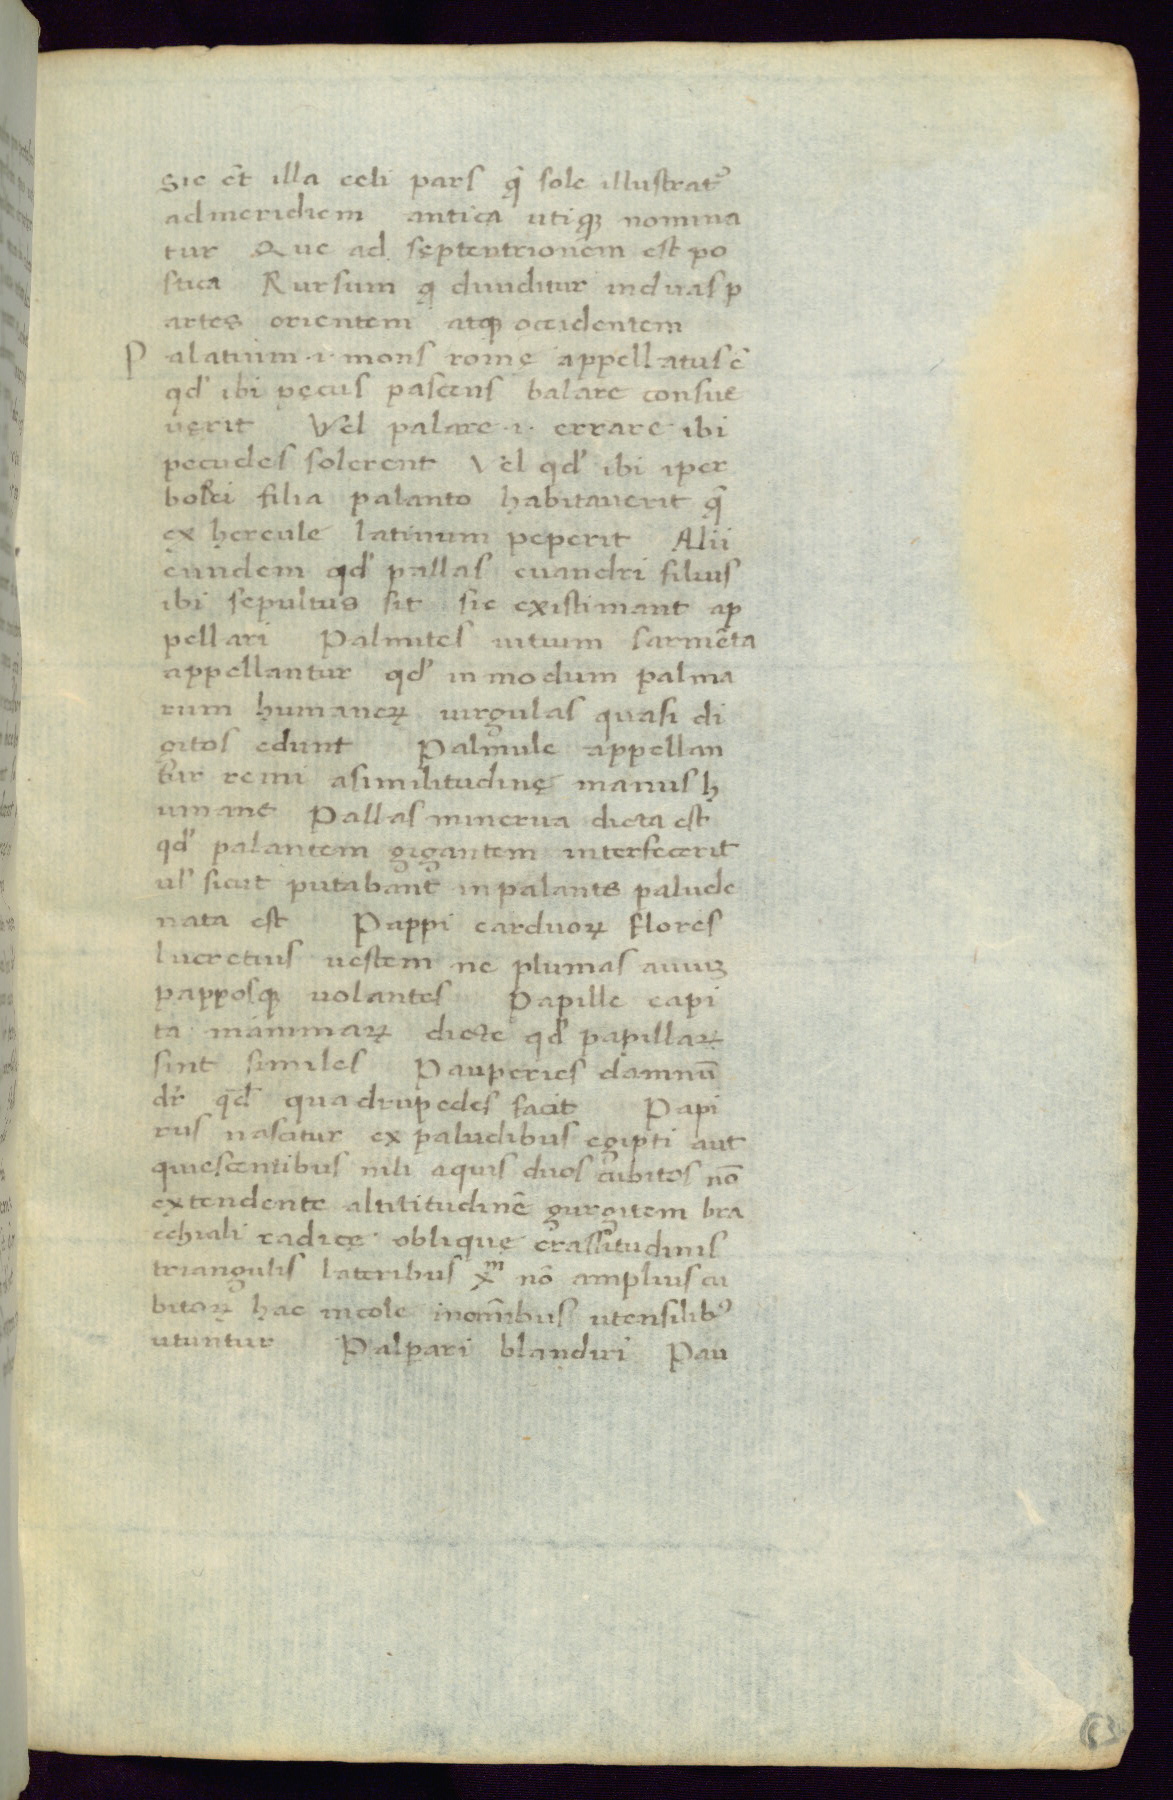 Sic ēt illa celi pars q̄ sole illustrat᷒
ad meridiem antica utiqꝫ nomina
tur Que ad septentrionem est po
stica Rursum q diuiditur in duas p
artes orientem atqꝫ occidentem
P alatium ·i· mons rome appellatus ē
qd' ibi pecus pascens balare consue
uerit Vel palare ·i· errare ibi
pecudes solerent Vel qd' ibi iper
borei filia palanto habitauerit q̄
ex hercule latinum peperit Alii
eundem qd' pallas euandri filius
ibi sepultus sit sic existimant ap
pellari Palmites uitium sarmēta
appellantur qd' in modum palma
rum humanoꝝ uirgulas quasi di
gitos edunt Palmule appellan
tur remi a similitudine manus h
umane Pallas minerua dicta est
qd' palantem gigantem interfecerit
ul' sicut putabant in palante palude
nata est Pappi carduoꝝ flores
lucretius uestem ne plumas auiuꝫ
papposqꝫ uolantes Papille capi
ta mammaꝝ dicte qd' papillaꝝ
sint similes Pauperies damnū
dr̄ qd' quadrupedes facit Papi
rus nascitur ex paludibus egipti aut
quiescentibus nili aquis duos cubitos nō
extendente altititudinē gurgitem bra
cchiali radice oblique crassitudinis
triangulis lateribus xᵐ nō amplius cu
bitoꝝ hac incole in om̄ibus utensilib᷒
utuntur Palpari blandiri Pau
63